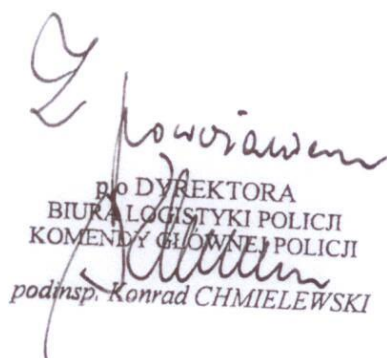 Z poważaniem
p/o DYREKTORA
BIURA LOGISTYKI POLICJI
KOMENDY GŁÓWNEJ POLICJI
podinsp. Konrad CHMIELEWSKI